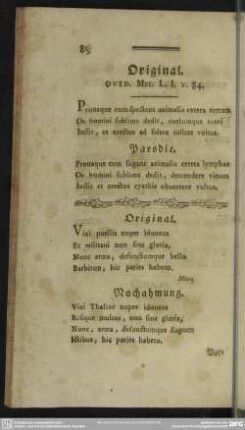 86
Original.
OVID. Met. L. I. v. 84.
Pronaque cum spectent animalia cetera terram
Os homini sublime dedit, coelumque tueri
Jussit, et erectos ad sidera tollere vultus.
Parodie.
Pronaque cum fugant animalia cetera lymphas
Os homini sublime dedit, descendere vinum
Jussit et erectos cyathis obvertere vultus.
Original.
Vixi puellis nuper idoneus
Et militavi non sine gloria,
Nunc arma, defunctumque bello
Barbiton, hic paries habebit.
Horaz
Nachahmung.
Vixi Thaliae nuper idoneus
Risique multus, non sine gloria;
Nunc, arma, defunctumque flagrum
Ictibus, hic paries habebit.